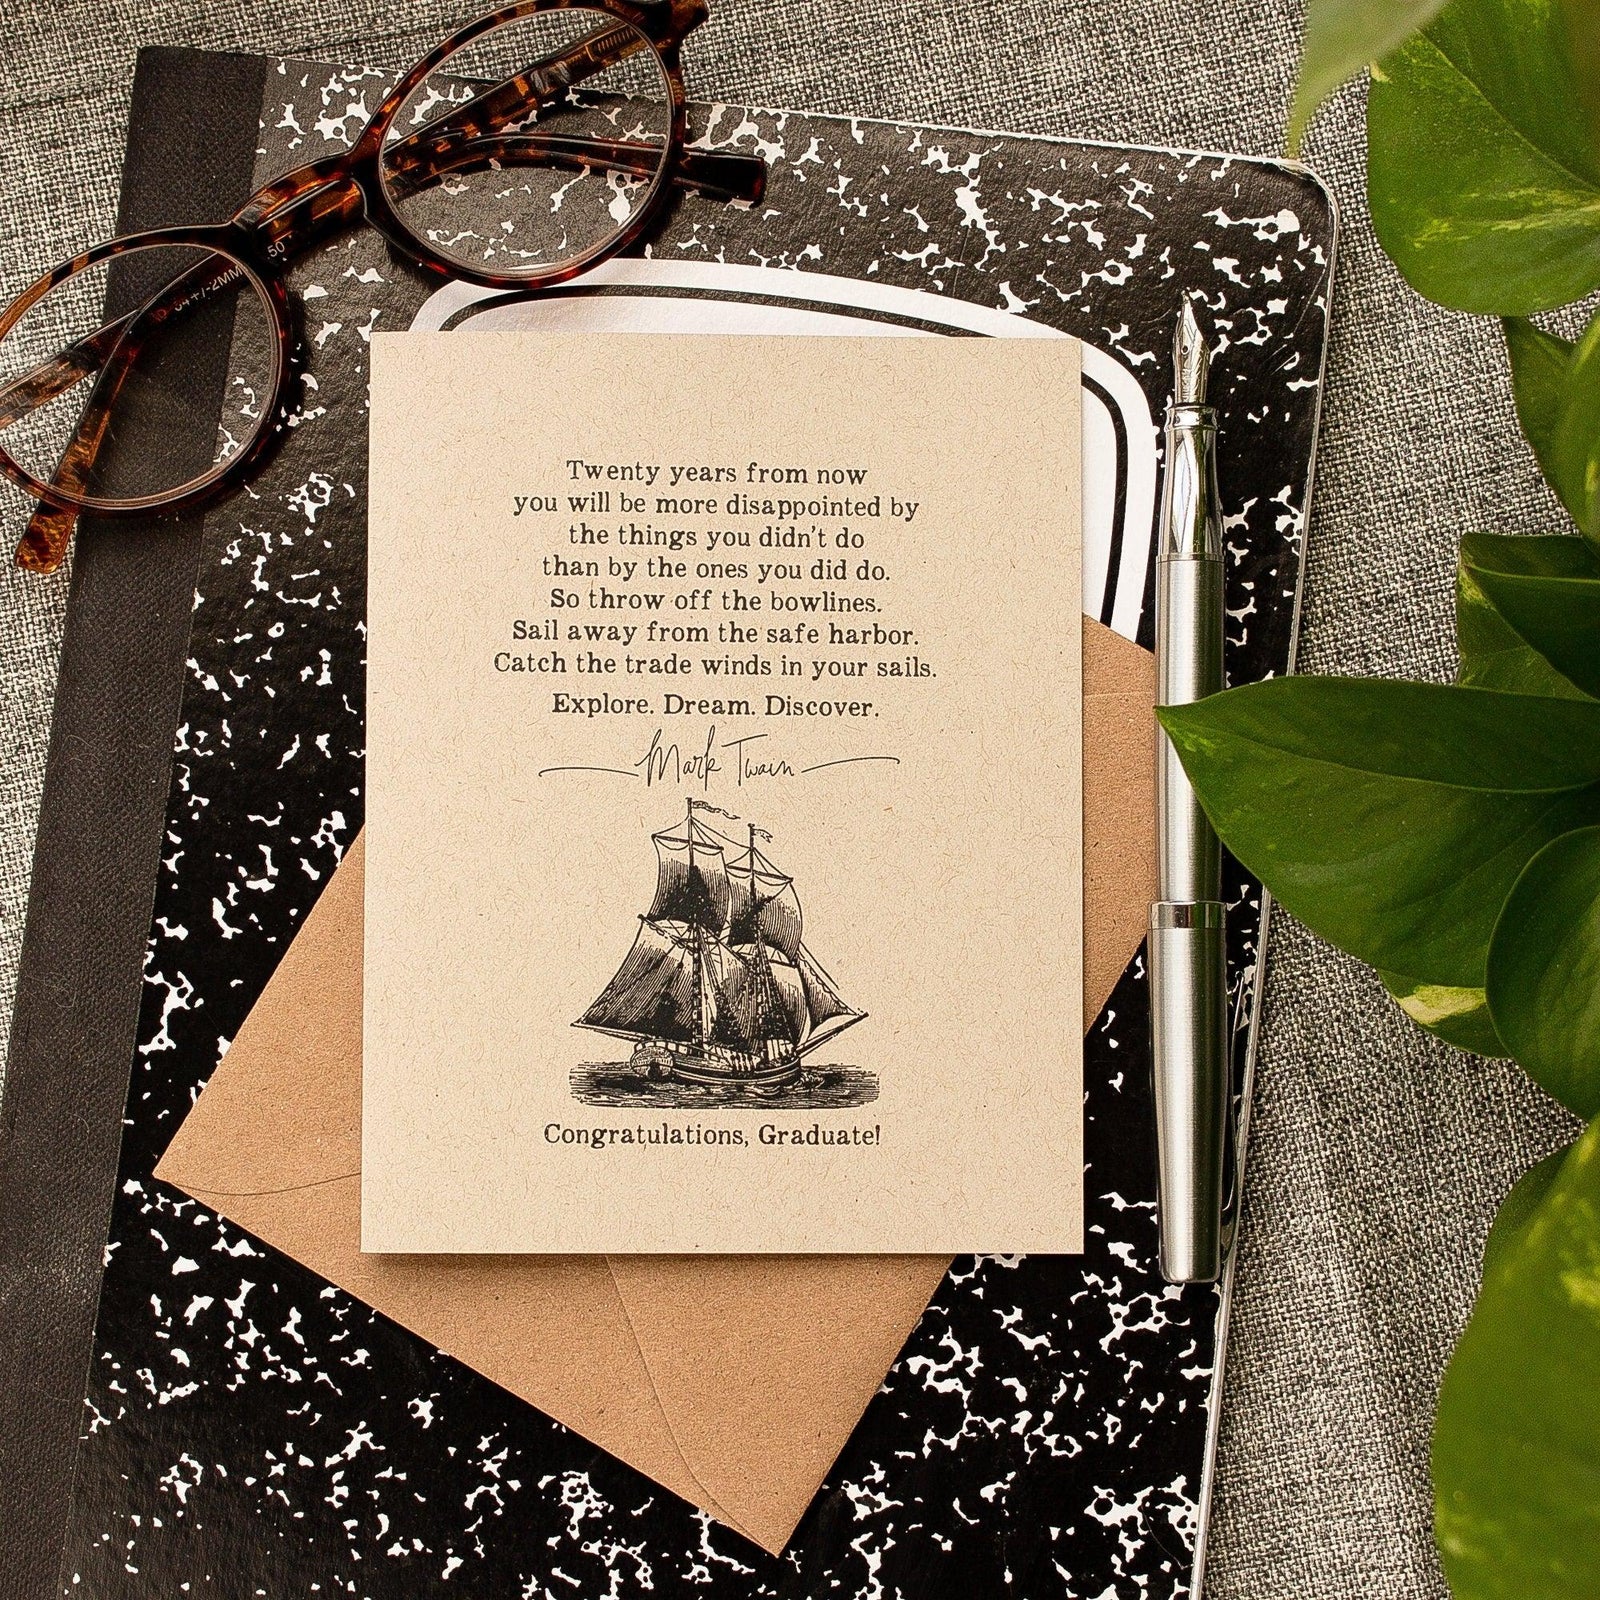 50
54+/-2MM
Twenty years from now
you will be more disappointed by
the things you didn't do
than by the ones you did do.
So throw off the bowlines.
Sail away from the safe harbor.
Catch the trade winds in your sails.
Explore. Dream. Discover.
Mark Twain
Congratulations, Graduate!